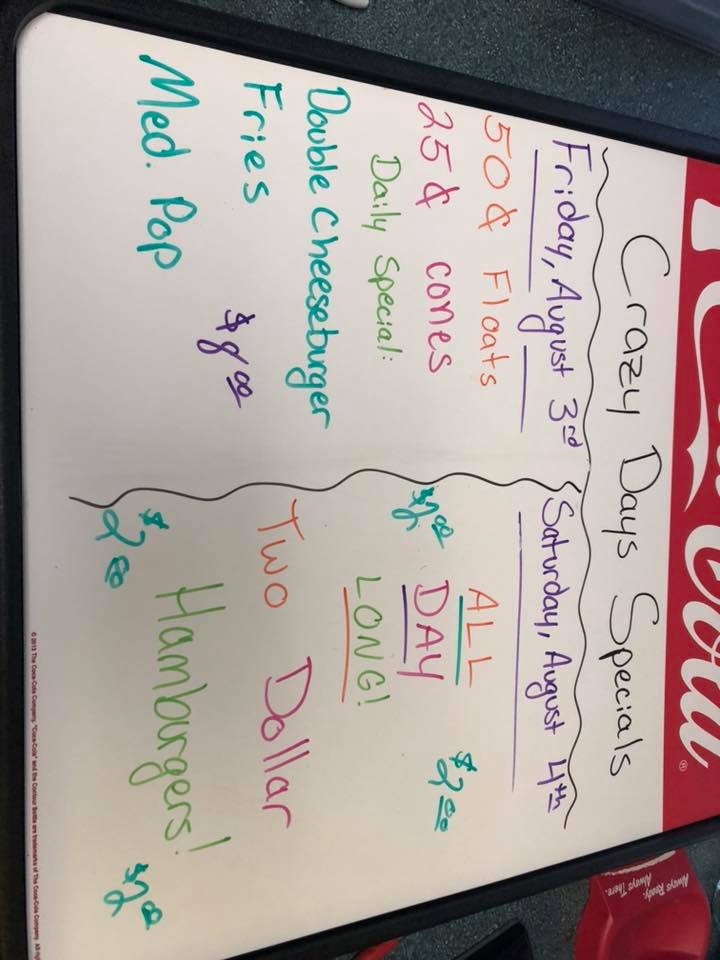 Cola®
Crazy Days Specials
Friday, August 3rd
50¢ Floats
25¢ cones
Daily Special:
Double Cheeseburger
Fries
$8 00
Med. Pop
Saturday, August 4th
ALL
$2 00 DAY $2 00
LONG!
Two Dollar
Hamburgers!
$2 00 $2 00
© The Coca-Cola Company. "Coca-Cola" and the Contour Bottle are trademarks of The Coca-Cola Company. All
Always Ready.
Always There.